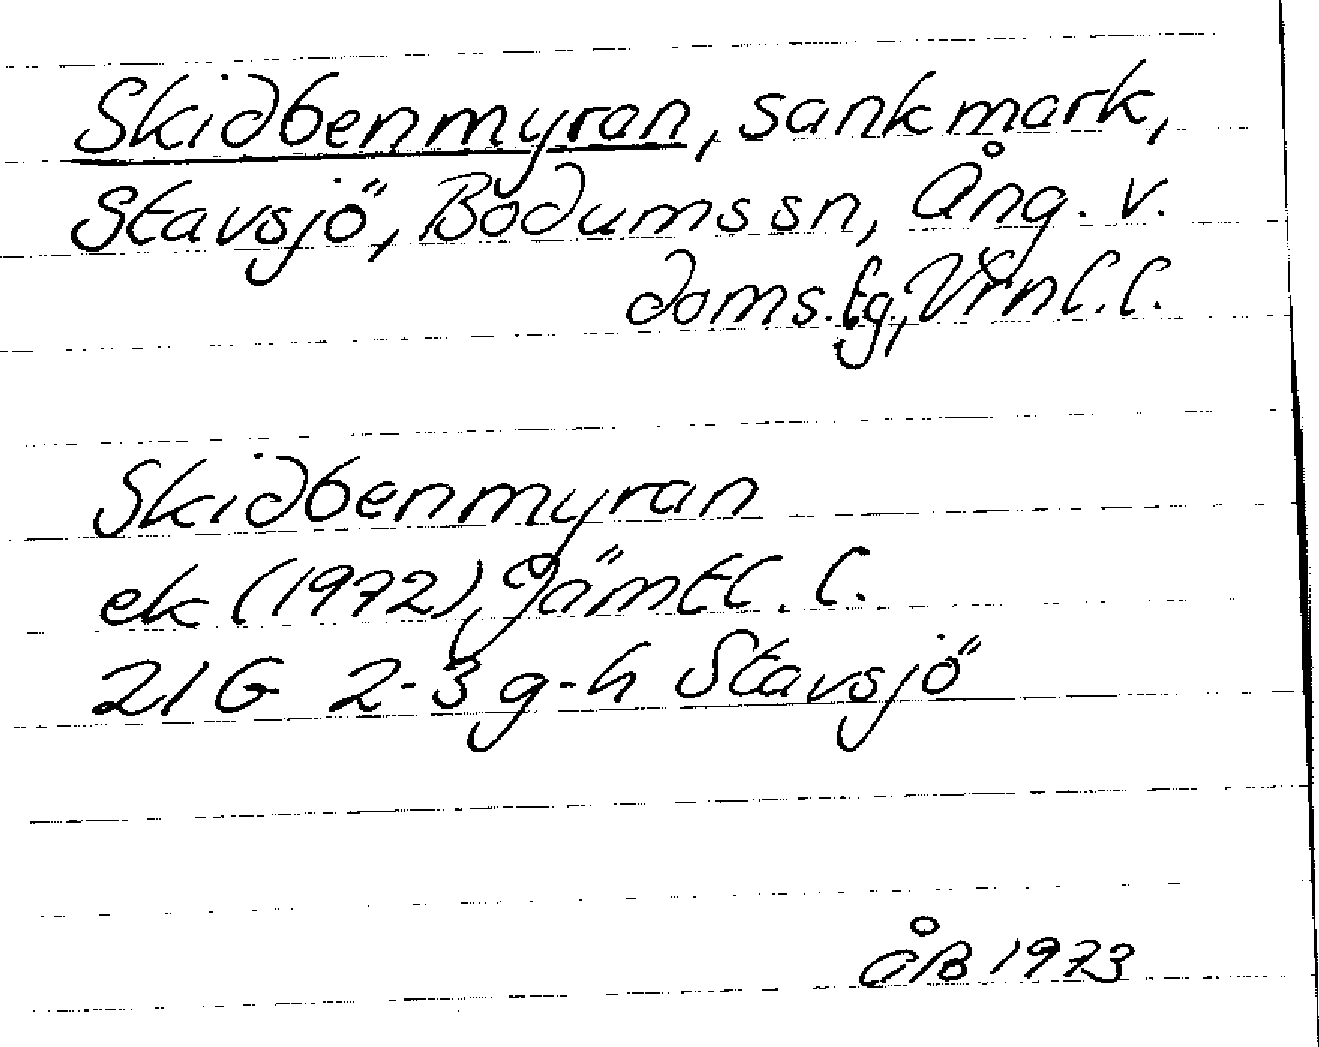 Skidbenmyran, sankmark,
Stavsjö, Bodums sn, Ång. v.
doms.tg, Vrnl.l.
Skidbenmyran
ek (1972), Jämtl.l.
21G 2-3 g-h Stavsjö
ÅB 1973